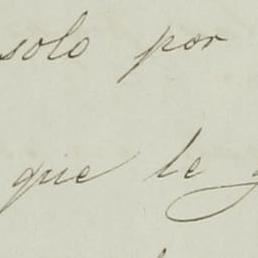 solo por
que le